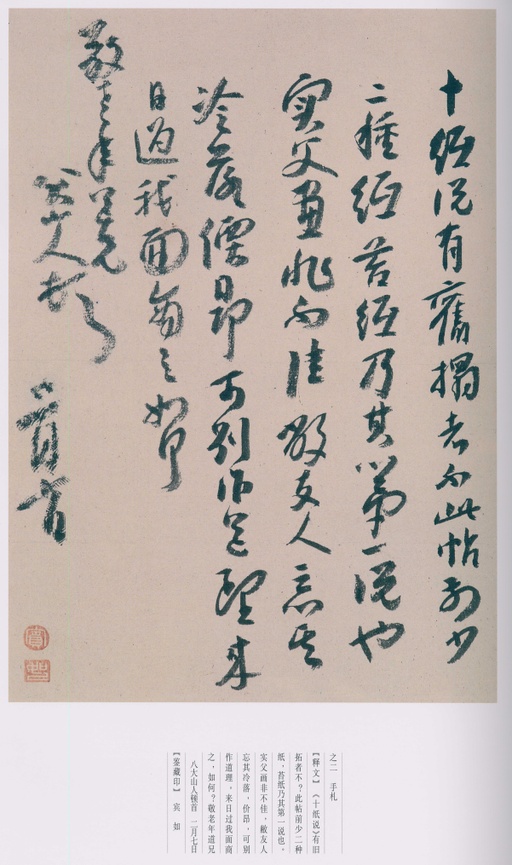 十紙说有舊搨者不此帖前少
二種紙苔紙乃其第一说也
实父画非不佳敝友人忘其
冷落價昂可別作道理来
日過我面商之如何
敬老年道兄
八大山人顿首
二月七日
之二 手札
【释文】《十纸说》有旧
拓者不？此帖前少二种
纸，苔纸乃其第一说也。
实父画非不佳，敝友人
忘其冷落，价昂，可别
作道理，来日过我面商
之，如何？敬老年道兄
八大山人顿首 二月七日
【鉴藏印】 宾 如